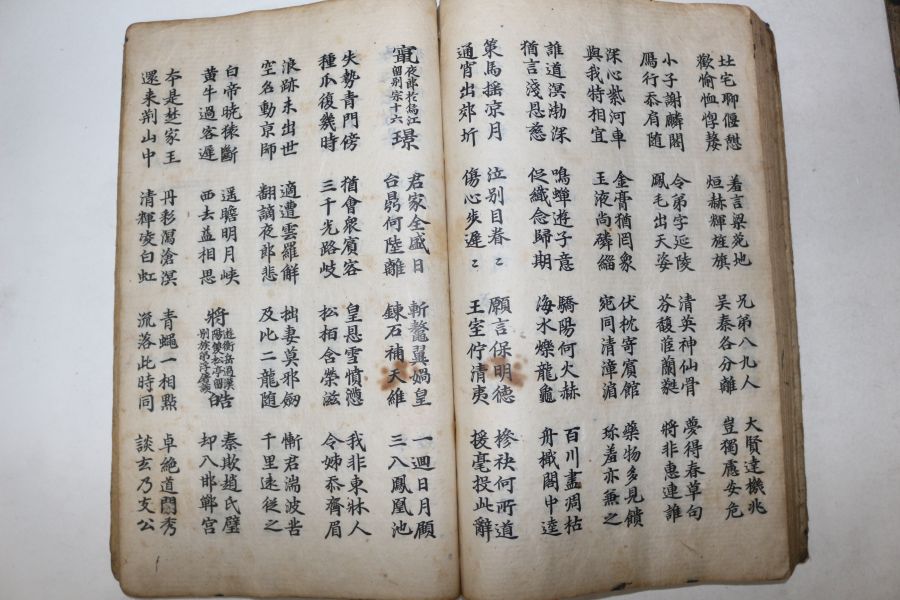 圡宅聊偃憇
歡愉恤惸嫠
羞言梁苑地
烜赫輝旌旗
兄弟八九人
吳秦各分離
大賢達機兆
豈獨慮安危
小子謝麟閣
鴈行忝肩随
令弟字延陵
鳳毛出天姿
清英神仙骨
芬馥茞蘭蕤
夢得春草句
將非惠連誰
深心紫河車
與我特相宜
金膏猶罔象
玉液尚磷緇
伏枕寄賓館
宛同清漳湄
藥物多見饋
珎羞亦兼之
誰道溟渤深
猶言淺恩慈
鳴蟬遊子意
促織念歸期
驕陽何火赫
海水爍龍龜
百川盡凋枯
舟檝閣中逵
策馬搖凉月
通宵出郊圻
泣別目眷〻
傷心步遲〻
願言保明德
王室佇清夷
摻袂何所道
援毫投此辭
竄夜郎於烏江留別宗十六璟
君家全盛日
台鼎何陸離
斬鼇翼媧皇
鍊石補天維
一迴日月顧
三入鳳凰池
失勢青門傍
種瓜復幾時
猶會衆賓容
三千光路歧
皇恩雪憤懣
松柏含榮滋
我非東牀人
令姊忝齊眉
浪跡未出世
空名動京師
適遭雲羅解
翻謫夜郎悲
拙妻莫邪劒
及此二龍随
慚君湍波苦
千里遠從之
白帝曉猿斷
黄牛過客遲
遥瞻明月峽
西去益相思
將遊衡岳過漢陽雙松亭留別族弟浮屠談皓
秦欺趙氏璧
却入邯鄲宮
本是楚家玉
還來荆山中
丹彩瀉滄溟
清輝凌白虹
青蠅一相點
流落此時同
卓絶道門秀
談玄乃支公